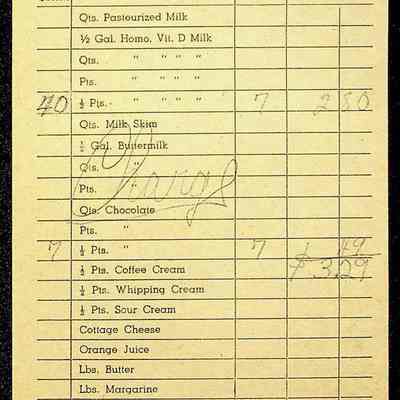 Qts. Pasteurized Milk
½ Gal. Homo. Vit. D Milk
Qts. " " " "
Pts. " " " "
40 ½ Pts. " " " " 7 2 80
Qts. Milk Skim
½ Gal. Buttermilk
Qts. "
Pts. "
Charge
Qts. Chocolate
Pts. "
7 ½ Pts. " 7 49
½ Pts. Coffee Cream $ 3.29
½ Pts. Whipping Cream
½ Pts. Sour Cream
Cottage Cheese
Orange Juice
Lbs. Butter
Lbs. Margarine